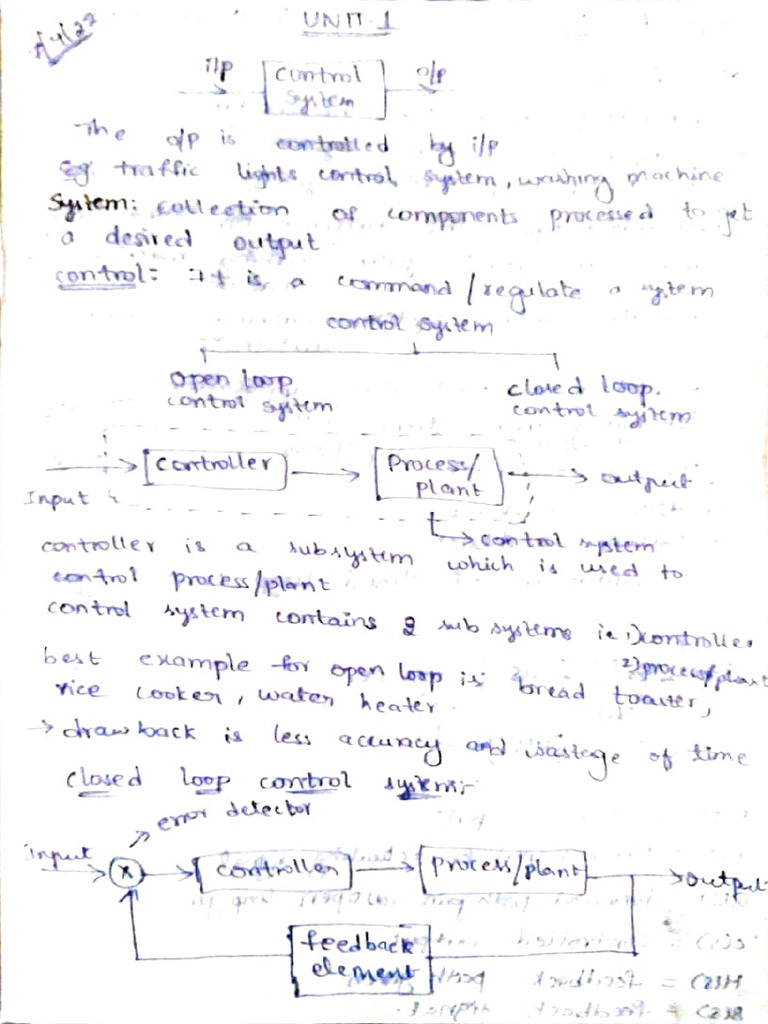 UNIT-1
i/p control o/p
system
The o/p is controlled by i/p
eg. traffic lights control system, washing machine
System: collection of components processed to get
a desired output
control: It is a command/regulate a system
control system
open loop closed loop.
control system control system
controller Process/ output
Input plant
control system
controller is a subsystem which is used to
control process/plant
control system contains 2 sub systems ie 1) controller
2) process/plant
best example for open loop is bread toaster,
rice cooker, water heater.
→ drawback is less accuracy and wastage of time
closed loop control system:-
error detector
input x controller process/plant output
feedback
element